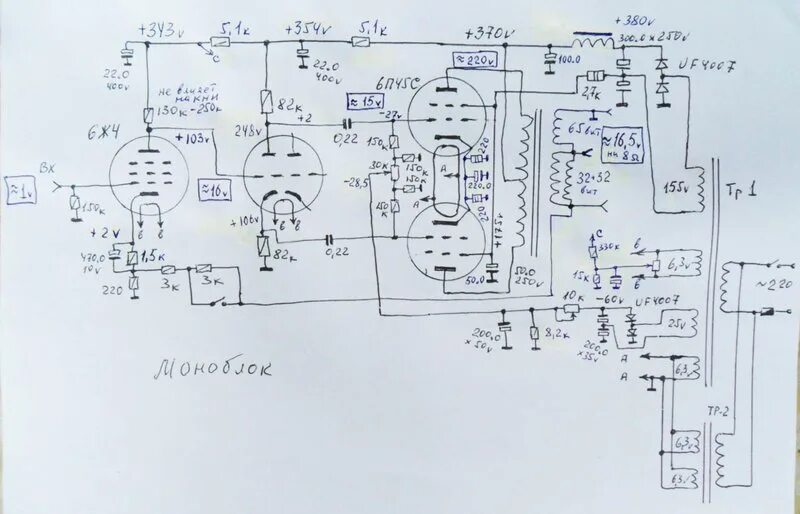 +343v
5,1к
+354v
5,1к
+370v
+380v
300.0 x 250v
UF4007
22.0
400v
C
не влияет
на кни
130к-250к
82к
22.0
400v
6П45С
≈220v
100.0
2,7к
6Ж4
+103v
248v
+2
≈15v
-27v
0,22
150к
220
65 вит
≈16,5v
на 8Ω
Вх
≈1v
150к
≈16v
30к
150к
150к
-28,5
A
220.0
32+32
вит
155v
Тр 1
A
220
150к
+2v
6
6
+106v
6
6
82к
0,22
+175v
50.0
50.0
250v
470,0
10v
1,5к
220
3к
3к
C
330к
15к
6
6,3v
6
≈220
10к
-60v
UF4007
25v
200.0
x50v
8,2к
200.0
x35v
A
A
6,3v
Моноблок
ТР-2
6,3v
6,3v